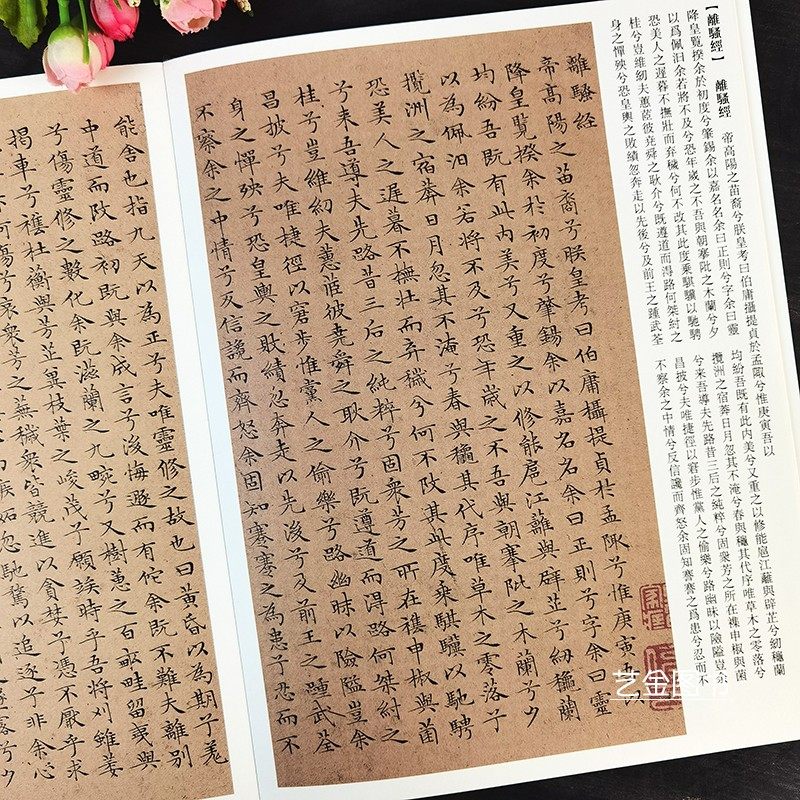 【離騷經】 離騷經 帝高陽之苗裔兮朕皇考曰伯庸攝提貞於孟陬兮惟庚寅吾以
降皇覽揆余於初度兮肇錫余以嘉名名余曰正則兮字余曰靈
均紛吾既有此内美兮又重之以修能扈江蘺與辟芷兮紉穐蘭
以爲佩汨余若將不及兮恐年歲之不吾與朝搴阰之木蘭兮夕
攬洲之宿莽日月忽其不淹兮春與穐其代序唯草木之零落兮
恐美人之遲暮不撫壯而弃穢兮何不改其此度乘騏驥以馳騁
兮來吾導夫先路昔三后之純粹兮固衆芳之所在襍申椒與菌
桂兮豈維紉夫蕙茝彼堯舜之耿介兮既遵道而得路何桀紂之
昌披兮夫唯捷徑以窘步惟黨人之偷樂兮路幽昧以險隘豈余
身之憚殃兮恐皇輿之敗績忽奔走以先後兮及前王之踵武荃
不察余之中情兮反信讒而齊怒余固知謇謇之爲患兮忍而不
離騷經
帝高陽之苗裔兮朕皇考曰伯庸攝提貞於孟陬兮惟庚寅
降皇覽揆余於初度兮肇錫余以嘉名名余曰正則兮字余曰靈
均紛吾既有此内美兮又重之以修能扈江蘺與辟芷兮紉穐蘭
以為佩汨余若將不及兮恐年歲之不吾與朝搴阰之木蘭兮夕
攬洲之宿莽日月忽其不淹兮春與穐其代序唯草木之零落兮
恐美人之遲暮不撫壯而弃穢兮何不改其此度乘騏驥以馳騁
兮来吾導夫先路昔三后之純粹兮固衆芳之所在襍申椒與菌
桂兮豈維紉夫蕙茝彼堯舜之耿介兮既遵道而得路何桀紂之
昌披兮夫唯捷徑以窘步惟黨人之偷樂兮路幽昧以險隘豈余
身之憚殃兮恐皇輿之敗績忽奔走以先後兮及前王之踵武荃
不察余之中情兮反信讒而齊怒余固知謇謇之為患兮忍而不
能舍也指九天以為正兮夫唯靈修之故也曰黃昏以為期兮羌
中道而改路初既與余成言兮後悔遯而有佗余既不難夫離別
兮傷靈修之數化余既滋蘭之九畹兮又樹蕙之百畝畦留夷與
揭車兮襍杜蘅與芳芷冀枝葉之峻茂兮願竢時乎吾將刈雖萎
何傷兮哀衆芳之蕪穢衆皆競進以貪婪兮憑不厭乎求
忽馳騖以追逐兮非余心
艺金图书